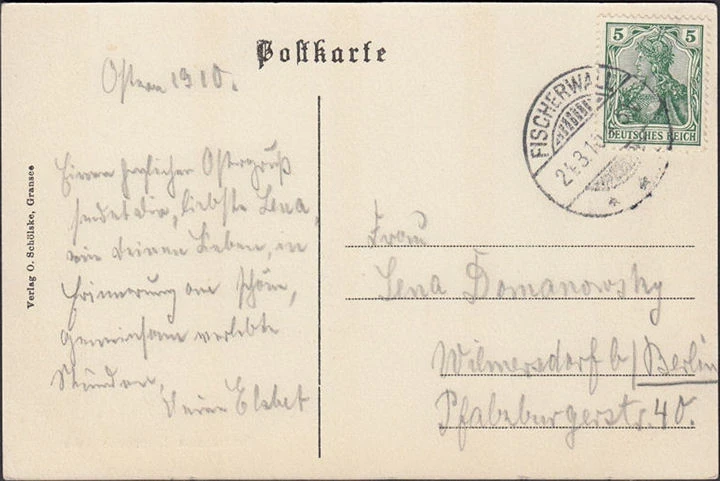 Postkarte
Ostern 1910.
Einen herzlichen Ostergruß
sendet Dir, liebste Lena,
wie Deinen Lieben, in
Erinnerung an schöne,
gemeinsam verlebte
Stunden,
Deine Elsbet
Verlag O. Schölske, Gransee
5 5
DEUTSCHES REICH
FISCHERWALL
Frau
Lena Domanowsky
Wilmersdorf b/Berlin
Pfalzburgerstr. 40.